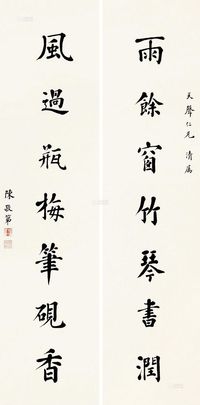 天聲仁兄 清屬
雨餘窗竹琴書潤
風過瓶梅筆硯香
陳敬第